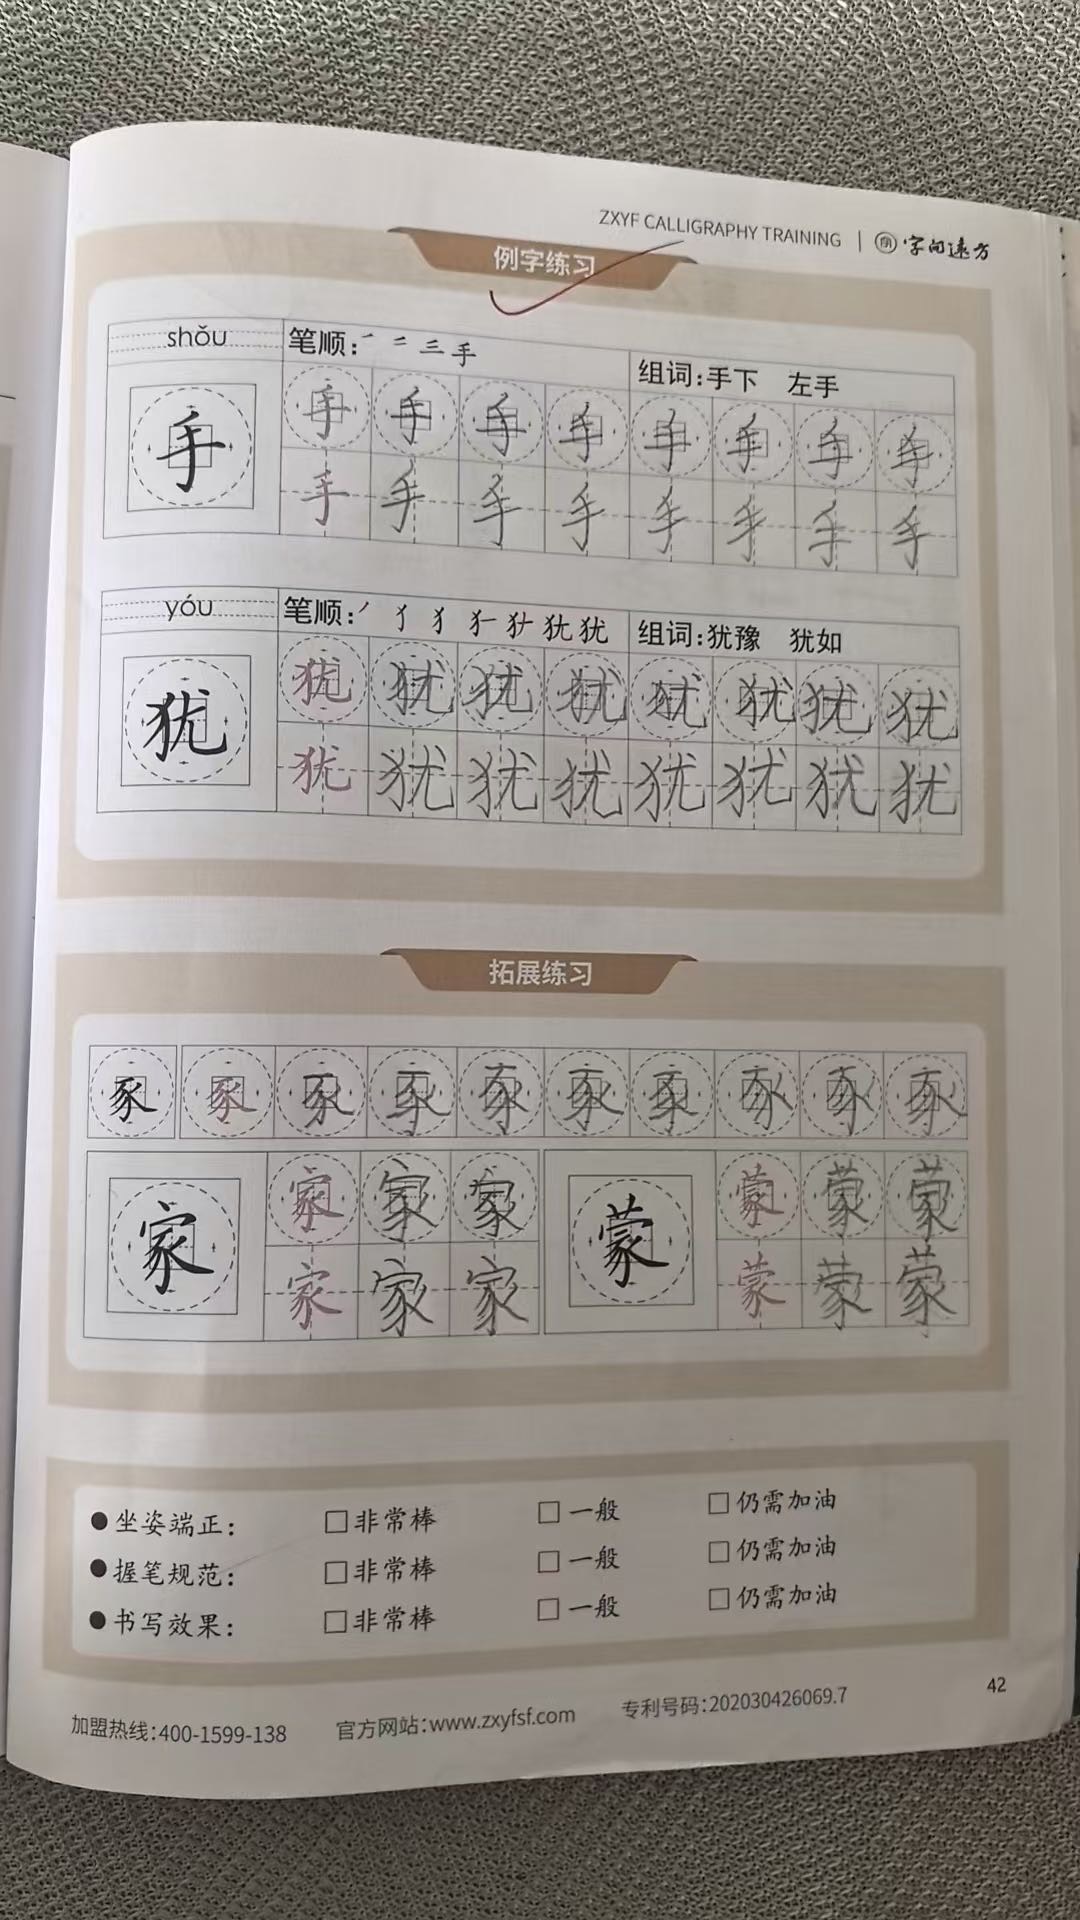 ZXYF CALLIGRAPHY TRAINING | 字间远方
例字练习
shǒu 笔顺: 一 二 三 手 组词:手下 左手
手 手 手 手 手 手 手 手 手
手 手 手 手 手 手 手 手
yóu 笔顺: 丿 犭 犭 犹 犹 组词:犹豫 犹如
犹 犹 犹 犹 犹 犹 犹 犹 犹
犹 犹 犹 犹 犹 犹 犹 犹
拓展练习
豕 豕 豕 豕 豕 豕 豕 豕 豕 豕
家 家 家 家 蒙 蒙 蒙 蒙
家 家 家 蒙 蒙 蒙
●坐姿端正: □非常棒 □一般 □仍需加油
●握笔规范: □非常棒 □一般 □仍需加油
●书写效果: □非常棒 □一般 □仍需加油
42
加盟热线:400-1599-138 官方网站:www.zxyfsf.com 专利号码:202030426069.7